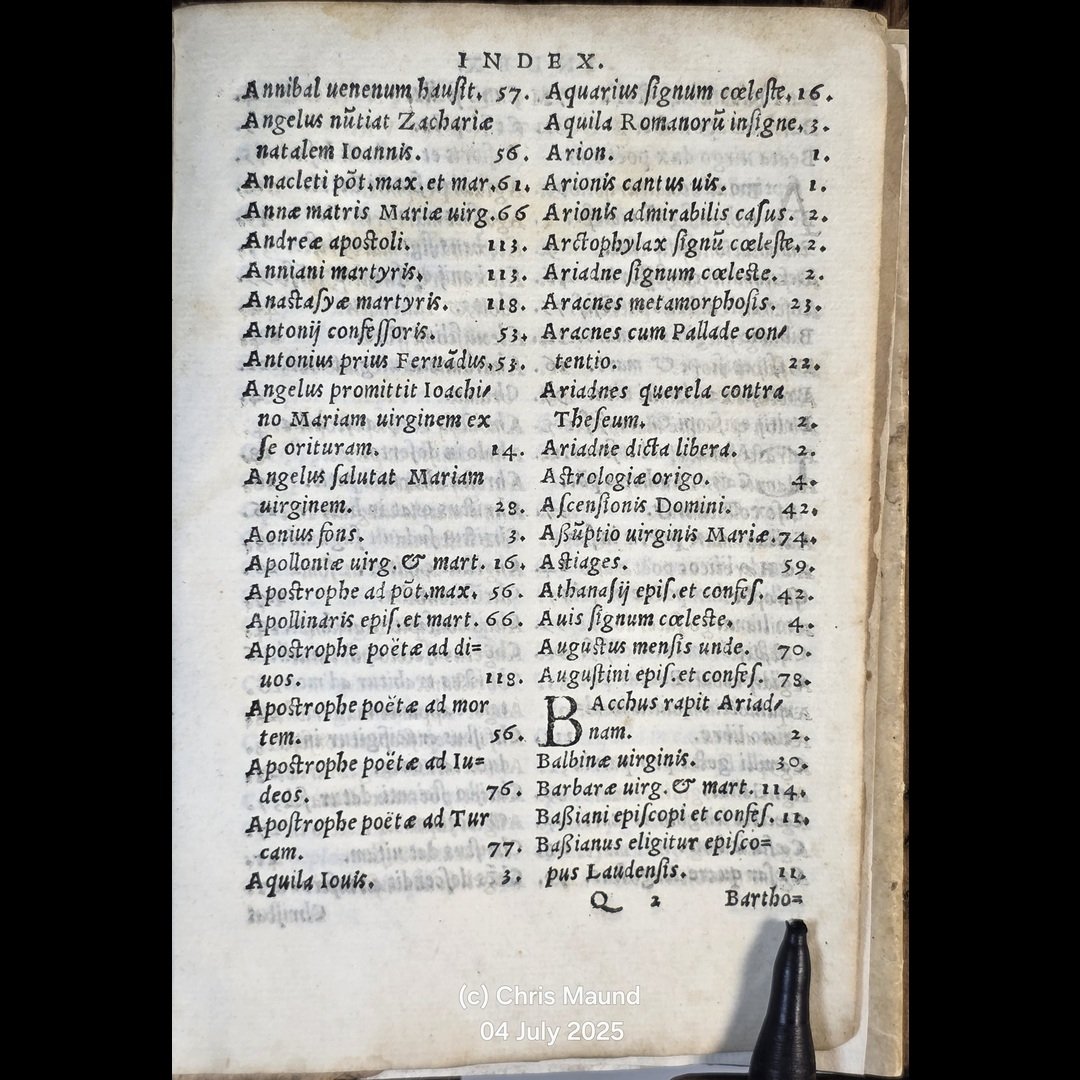 INDEX.
Annibal uenenum hauſit. 57.
Angelus nũtiat Zachariæ
natalem Ioannis. 56.
Anacleti põt.max.et mar.61.
Annæ matris Mariæ uirg.66
Andreæ apoſtoli. 113.
Anniani martyris. 113.
Anaſtaſyæ martyris. 118.
Antonij confeſſoris. 53.
Antonius prius Fernãdus.53.
Angelus promittit Ioachi/
no Mariam uirginem ex
ſe orituram. 14.
Angelus ſalutat Mariam
uirginem. 28.
Aonius fons. 3.
Apolloniæ uirg. & mart. 16.
Apoſtrophe ad põt.max. 56.
Apollinaris epiſ.et mart. 66.
Apoſtrophe poëtæ ad di=
uos. 118.
Apoſtrophe poëtæ ad mor
tem. 56.
Apoſtrophe poëtæ ad Iu=
deos. 76.
Apoſtrophe poëtæ ad Tur
cam. 77.
Aquila Iouis. 3.
Aquarius ſignum cœleſte.16.
Aquila Romanorũ inſigne.3.
Arion. 1.
Arionis cantus uis. 1.
Arionis admirabilis caſus. 2.
Arctophylax ſignũ cœleſte.2.
Ariadne ſignum cœleſte. 2.
Aracnes metamorphoſis. 23.
Aracnes cum Pallade con/
tentio. 22.
Ariadnes querela contra
Theſeum. 2.
Ariadne dicta libera. 2.
Aſtrologiæ origo. 4.
Aſcenſionis Domini. 42.
Aßũptio uirginis Mariæ.74.
Aſtiages. 59.
Athanaſij epiſ.et confeſ. 42.
Auis ſignum cœleſte. 4.
Auguſtus menſis unde. 70.
Auguſtini epiſ.et confeſ. 78.
BAcchus rapit Ariad/
nam. 2.
Balbinæ uirginis. 30.
Barbaræ uirg. & mart. 114.
Baßiani epiſcopi et confeſ. 11.
Baßianus eligitur epiſco=
pus Laudenſis. 11.
Q 2 Bartho=
(c) Chris Maund
04 July 2025